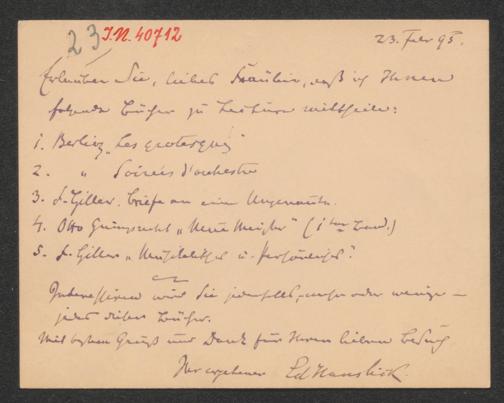 23 I.N. 40712
23. Febr 95.
Erlauben Sie, liebes Fräulein, daß ich Ihnen
folgende Bücher zu Lectüre mittheile:
1. Berlioz „Les grotesques"
2. " Soirées d'orchestre
3. F. Hiller. Briefe an eine Ungenannte.
4. Otto Gumprecht „Neue Meister" (1ter Band.)
5. F. Hiller „Musikalisches u. Persönliches".
Interessiren wird Sie jedenfalls, mehr oder weniger –
jedes dieser Bücher.
Mit bestem Gruß und Dank für Ihren lieben Besuch
Ihr ergebener Ed Hanslick.